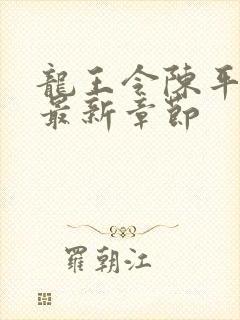 龍王令陳平
最新章節
羅朝江